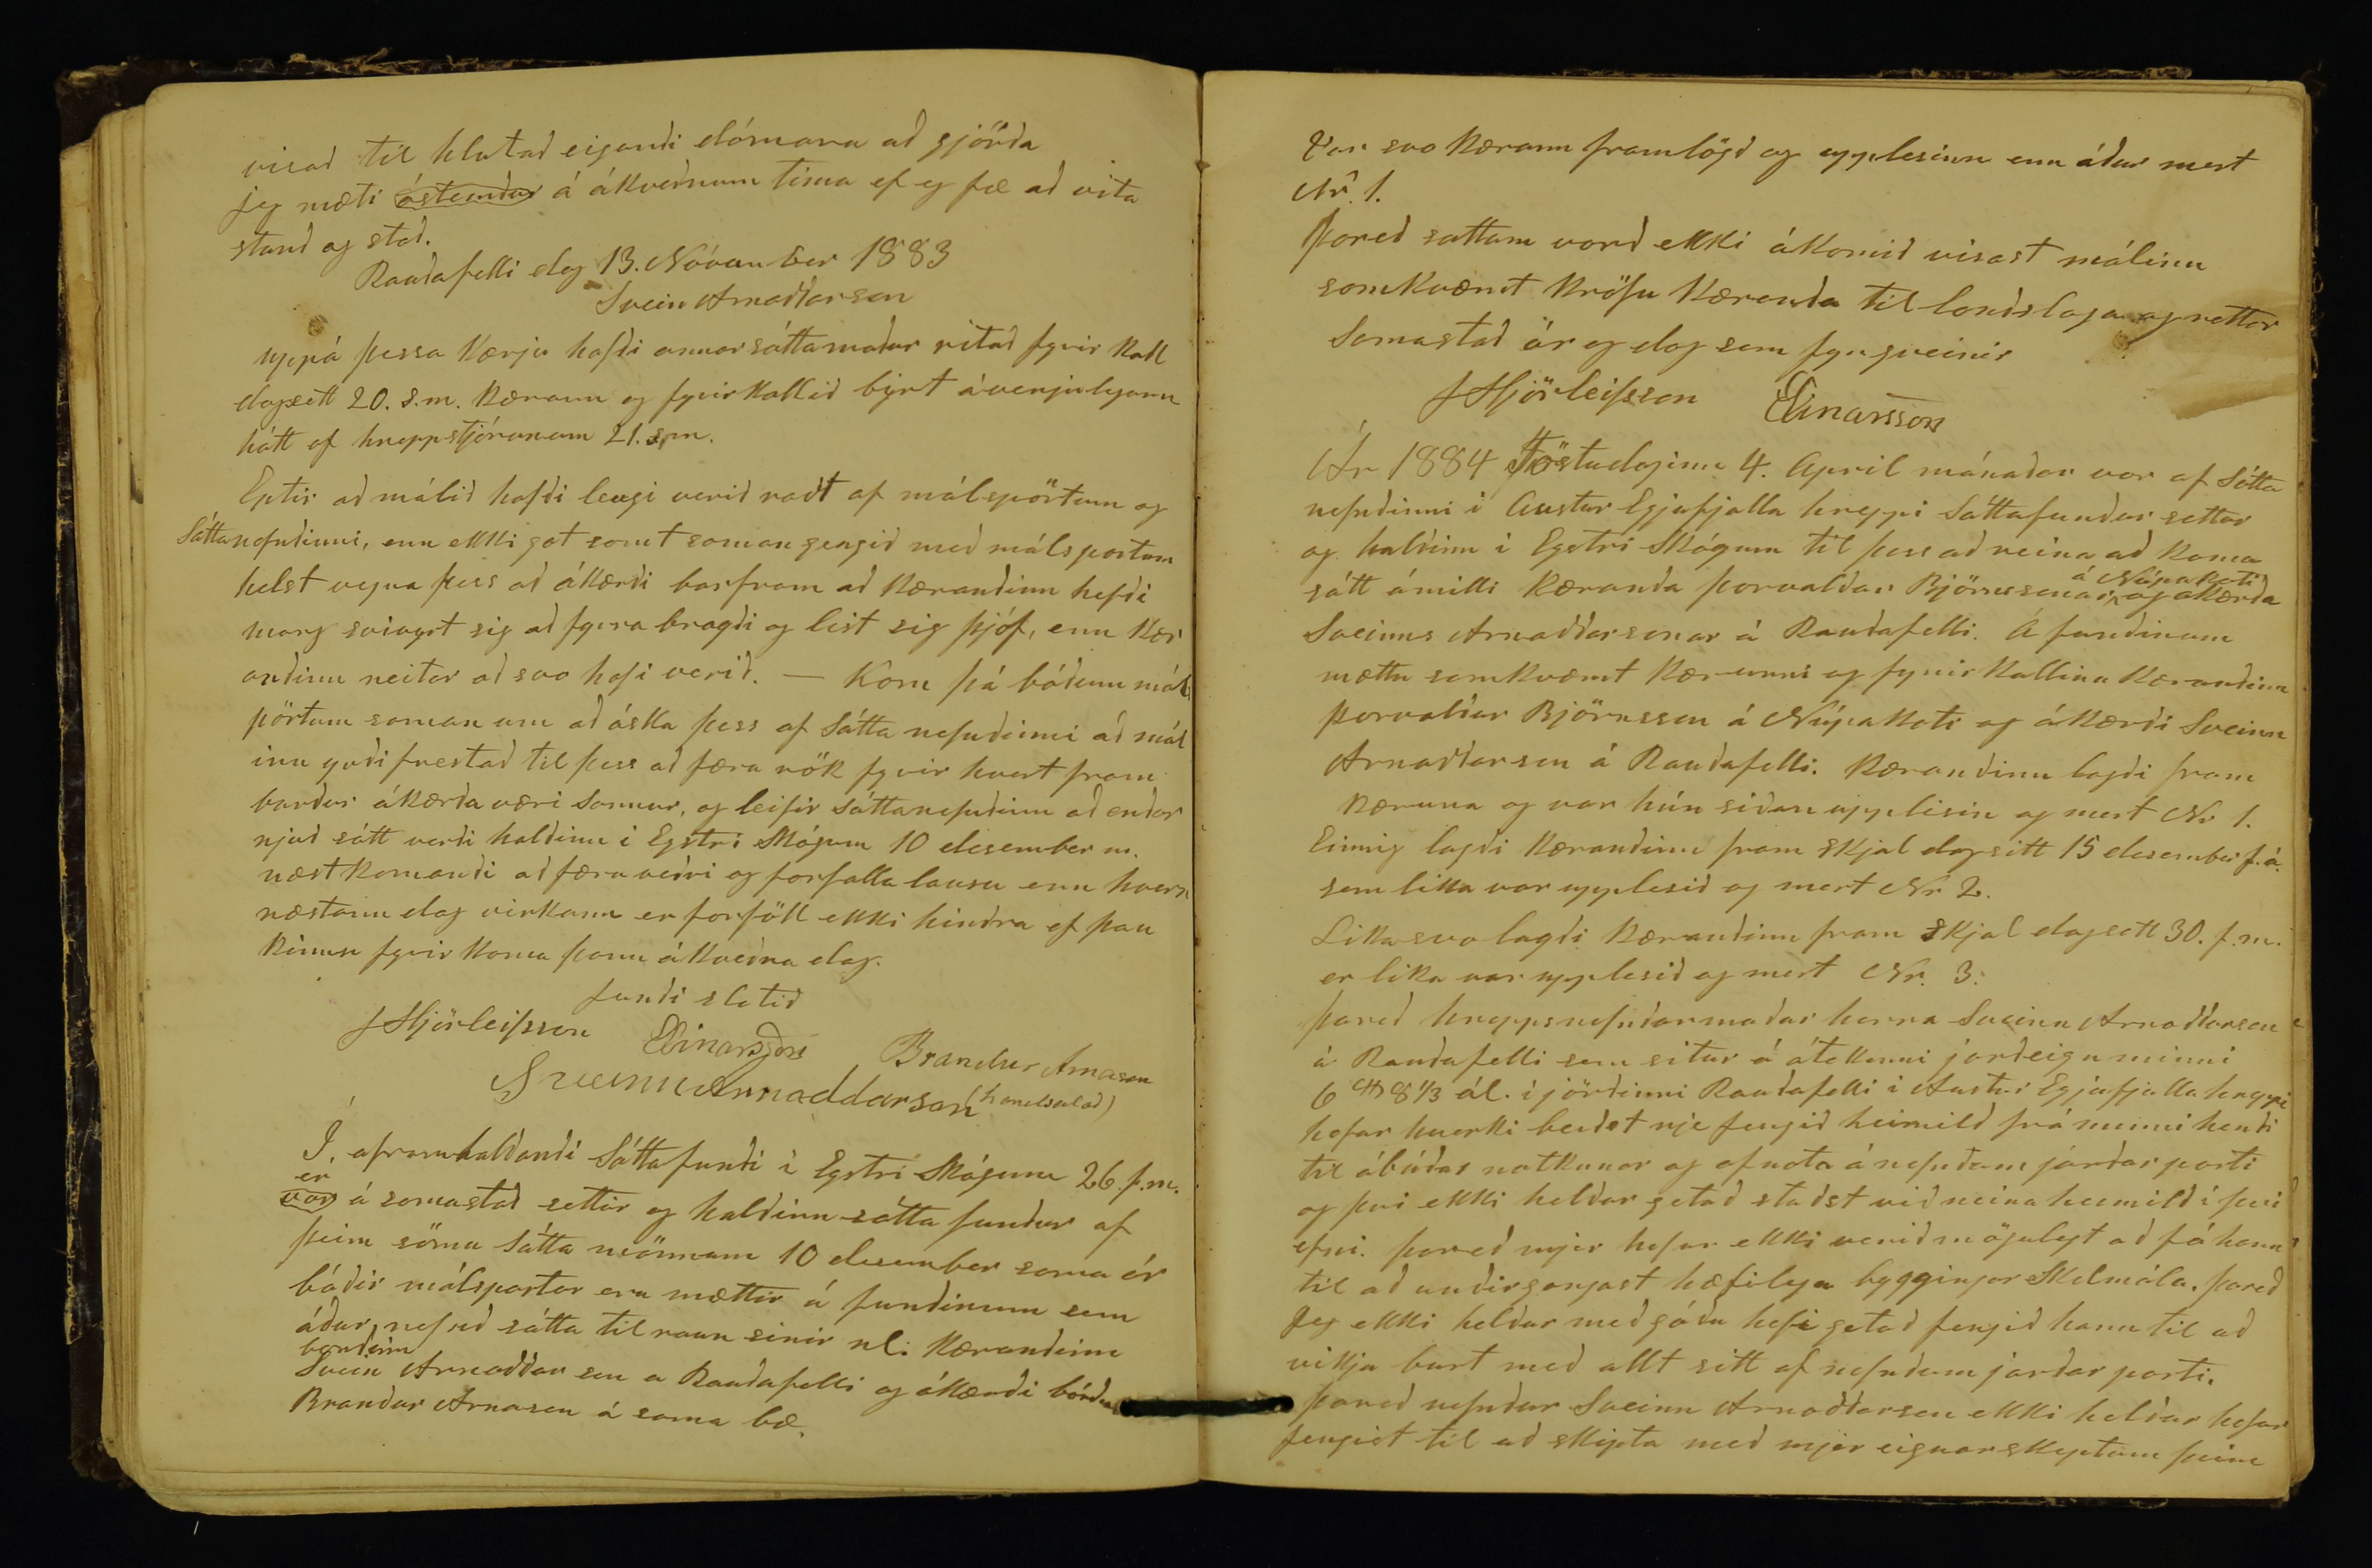 visad til hlutad eigandi dómara ad gjörda
jeg mæti óstemdur á ákvednum tíma ef eg fæ ad vita
stund og stad.
Raudafelli dag 13. Nóvember 1883
Svein Arnoddarson
uppá þessa kærju hafdi annar sáttamadur ritad fyrir kall
dagsett 20. s.m. kærann og fyrirkallid birt ávenjulegann
hátt af hreppstjóranum 21. s.m.
Eptir ad málid hafdi leingi verid rædt af málspörtum og
Sáttanefndinni, enn ekki gat samt saman gengid med málspörtum
helst vegna þess ad ákærdi barfram ad kærandinn hefdi
marg svivyrt sig ad fyrra bragdi og list sig þjóf, enn kær
andinn neitar ad svo hafi verid. — Kom þá bádum mál
pörtum saman um ad áska þess af Sátta nefndinni ad mál
inu yrdi frestad til þess ad færa rök fyrir hvort fram
burdur ákærda væri sannur, og leifir sáttanefndinn ad endur
njud sátt verdi haldinn i Eystri Skógum 10 desember m.
næstkomandi ad færu vedri og forfalla lausu enn hvern
næstann dag virkann er forföll ekki hindra ef þau
kinnu fyrir koma þann ákvedna dag.
fundi slitid
J Hjörleifsson EEinarsson Brandur Arnason
Sveinn Arnoddarson (handsalad)
Í, aframhaldandi Sáttafundi i Eystri Skógum 26. f.m.
er
var á samastad settur og haldinn sátta fundur af
þeim sömu Sátta mönnum 10 desember sama ár
bádir málspartar eru mættir á fundinum sem
ádur nefnd sátta tilraun sinir nl: kærandinn
bondinn
Svein Arnoddar son a Raudafelli og ákærdi bónd
Brandur Arnason á sama bæ.
Var svo kærann framlögd og upplesinn enn ádur mert
Nr. 1.
Þared sattum vard ekki ákomid visast málinu
samkvæmt kröfu kæranda til landslaga og rettar
Samastad ár og dag sem fyr greinir
J Hjörleifsson EEinarsson
Ár 1884 Föstudaginn 4. April mánadar var af Sátta
nefndinni i Austur Eyjafjalla hreppi Sáttafundur settur
og haldinn i Eystri Skógum til þess ad reina ad koma
á Núpakoti
sátt ámilli kæranda Þorvaldar Björnssonar og akærda
Sveinns Arnoddarsonar á Raudafelli. Á fundinum
mættu samkvæmt kærunni og fyrirkallinu kærandinn
Þorvaldur Björnsson á Núpakoti og ákærdi Sveinn
Arnoddarson á Raudafelli. Kærandinn lagdi fram
kæruna og var hún sidan upplisin og mert Nr 1.
Einnig lagdi kærandinn fram skjal dagsitt 15 desember f.á.
sem lika var upplesid og mert Nr 2.
Lika svo lagdi kærandinn fram skjal dagsett 30. f.m.
er lika var upplesid og mert Nr. 3.
Þared hreppsnefndarmadur herra Sveinn Arnoddarson
á Raudafelli sem situr á átekinni jardeign minni
6 8 1/3 ál. i jördinni Raudafelli i Austur Eyjafjalla hreppi
hefur hvorki beidst nje fengid heimild frá minni hendi
til ábúdar notkunar og afnota á nefndum jardar parti
og þvi ekki heldur getad stadst vid neina heimild i þvi
efni. Þared mjer hefur ekki verid mögulegt ad fá hann
til ad undirgangast hæfilega byggingar Skilmála. Þared
Jeg ekki heldur med gódu hefi getad fengid hann til ad
vikja burt med allt sitt af nefndum jardar parti.
Þared nefndur Sveinn Arnoddarson ekki heldur hefur
fengist til ad skipta med mjer eignarskyptum þeim